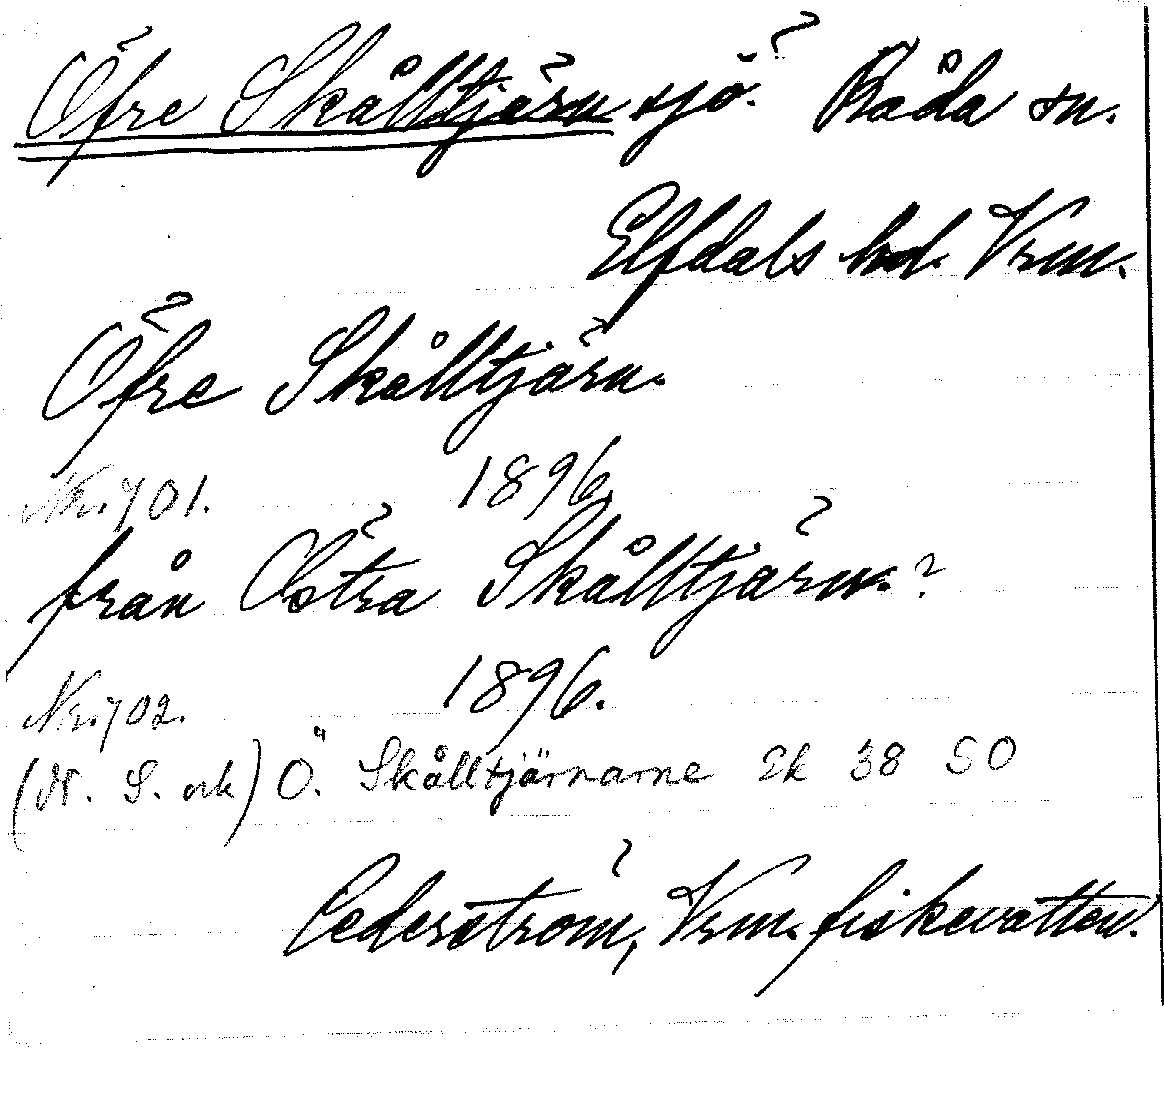 Öfre Skålltjärn sjö. Råda sn.
Elfdals hd. Vrm.
Öfre Skålltjärn.
Nr. 701. 1896.
från Östra Skålltjärn. ?
Nr. 702. 1896.
(N. S. och) Ö. Skålltjärnarne Ek 38 SO
Cederström, Vrm. fiskevatten.